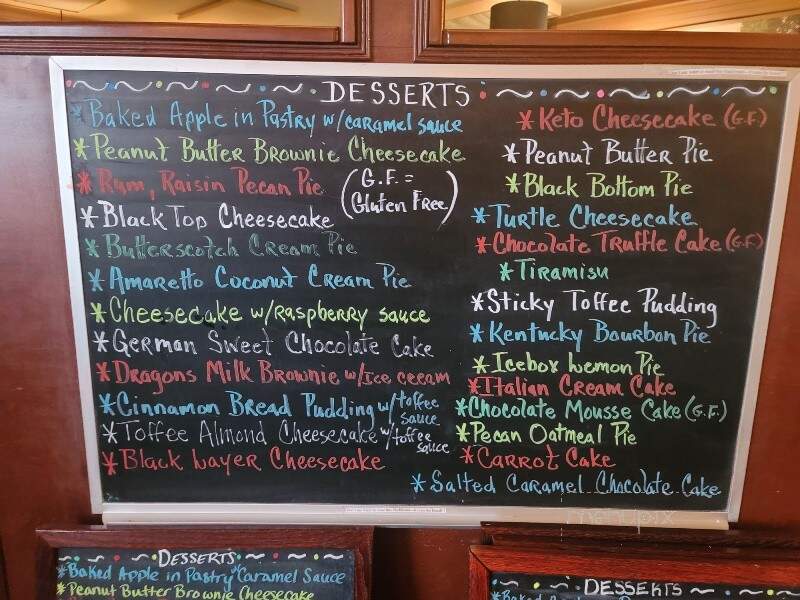 DESSERTS
*Baked Apple in Pastry w/caramel sauce
*Peanut Butter Brownie Cheesecake
*Rum, Raisin Pecan Pie
(G.F. =
Gluten Free)
*Black Top Cheesecake
*Butterscotch Cream Pie
*Amaretto Coconut Cream Pie
*Cheesecake w/raspberry sauce
*German Sweet Chocolate Cake
*Dragons Milk Brownie w/Ice cream
*Cinnamon Bread Pudding w/toffee
sauce
*Toffee Almond Cheesecake w/toffee
sauce
*Black Layer Cheesecake
*Keto Cheesecake (G.F.)
*Peanut Butter Pie
*Black Bottom Pie
*Turtle Cheesecake
*Chocolate Truffle Cake (G.F.)
*Tiramisu
*Sticky Toffee Pudding
*Kentucky Bourbon Pie
*Icebox Lemon Pie
*Italian Cream Cake
*Chocolate Mousse Cake (G.F.)
*Pecan Oatmeal Pie
*Carrot Cake
*Salted Caramel Chocolate Cake
DESSERTS
*Baked Apple in Pastry w/Caramel Sauce
*Peanut Butter Brownie Cheesecake
DESSERTS